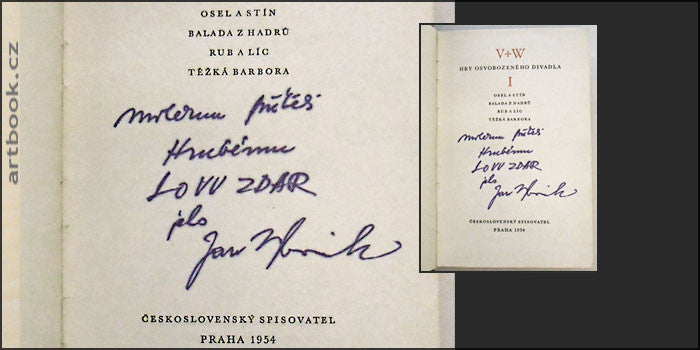 artbook.cz
OSEL A STÍN
BALADA Z HADRŮ
RUB A LÍC
TĚŽKÁ BARBORA
Hrubému
LOVU ZDAR
Jan Werich
ČESKOSLOVENSKÝ SPISOVATEL
PRAHA 1954
V+W
HRY OSVOBOZENÉHO DIVADLA
I
OSEL A STÍN
BALADA Z HADRŮ
RUB A LÍC
TĚŽKÁ BARBORA
Hrubému
LOVU ZDAR
Jan Werich
ČESKOSLOVENSKÝ SPISOVATEL
PRAHA 1954